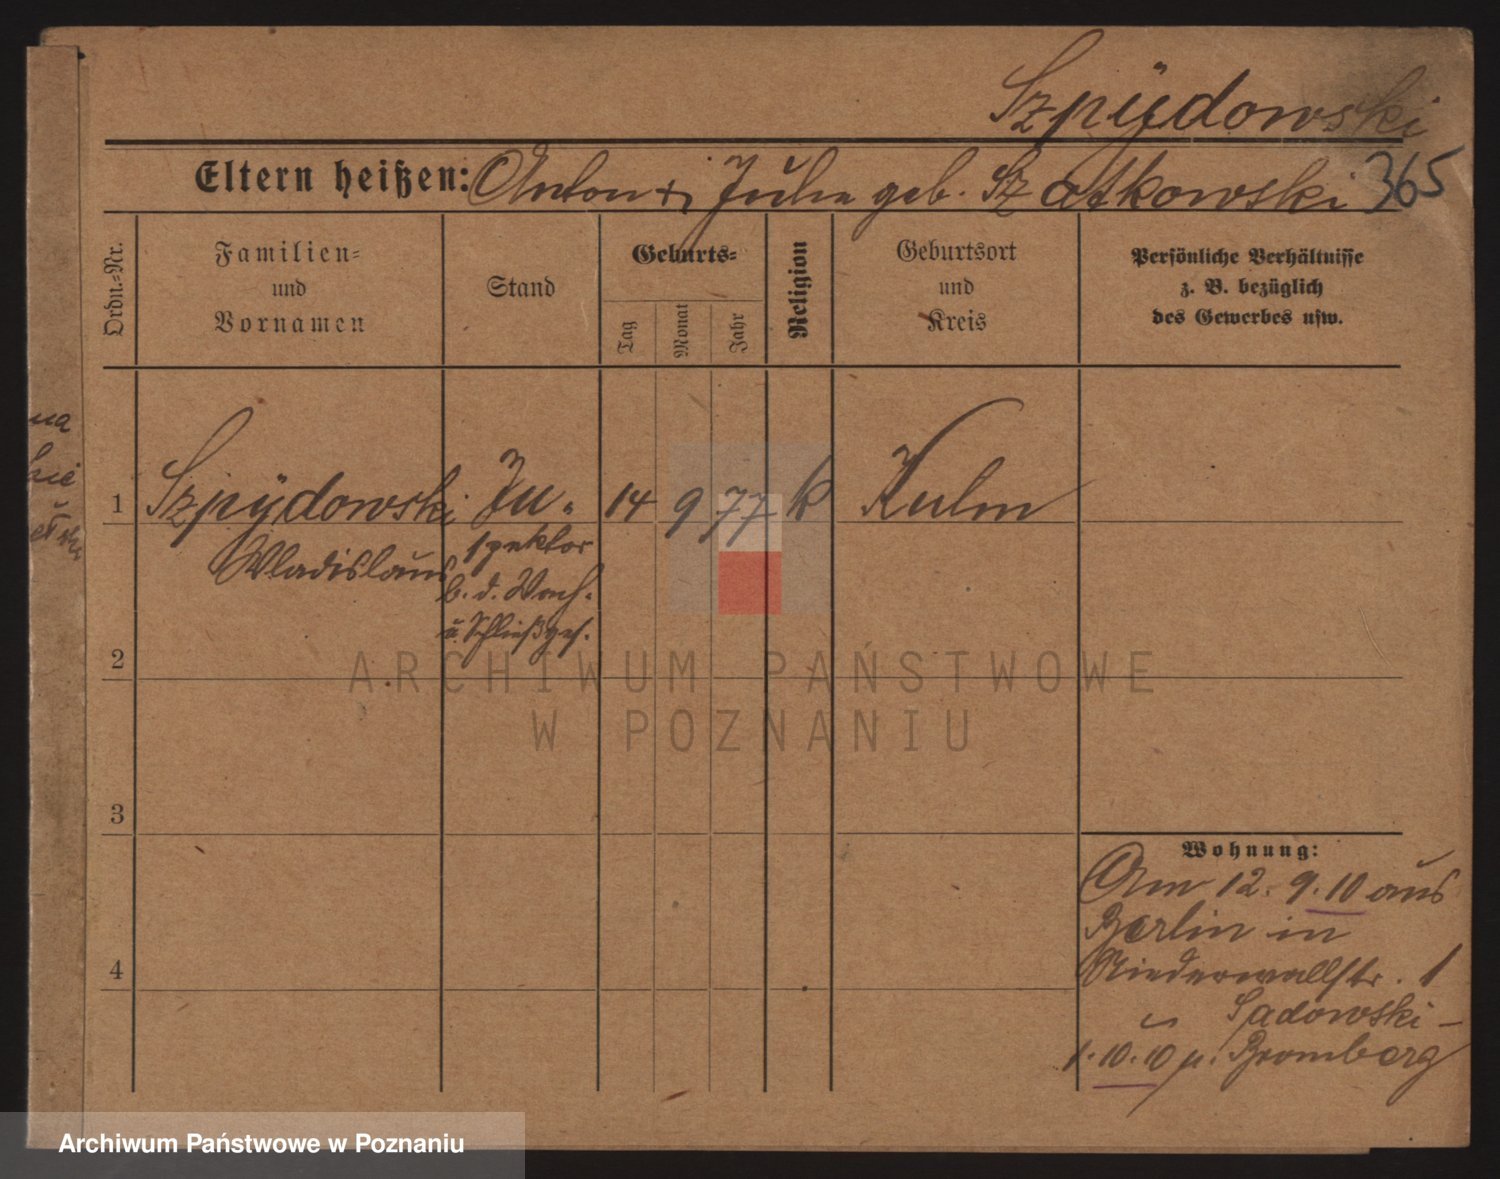 Szpÿdowski
Eltern heißen: Anton & Julie geb. Szatkowski 365
Ordn.-Nr.
Familien-
und
Vornamen
Stand
Geburts-
Tag
Monat
Jahr
Religion
Geburtsort
und
Kreis
Persönliche Verhältnisse
z. B. bezüglich
des Gewerbes usw.
1 Szpÿdowski In- 14 9 77 k Kulm
Wladislaus spektor
b. d. Wach-
u. Schließges.
2
3
4
Wohnung:
Am 12. 9. 10 aus
Berlin in
Niederwallstr. 1
b Sadowski -
1. 10. 10 n. Bromberg
na
ARCHIWUM PAŃSTWOWE
W POZNANIU
Archiwum Państwowe w Poznaniu